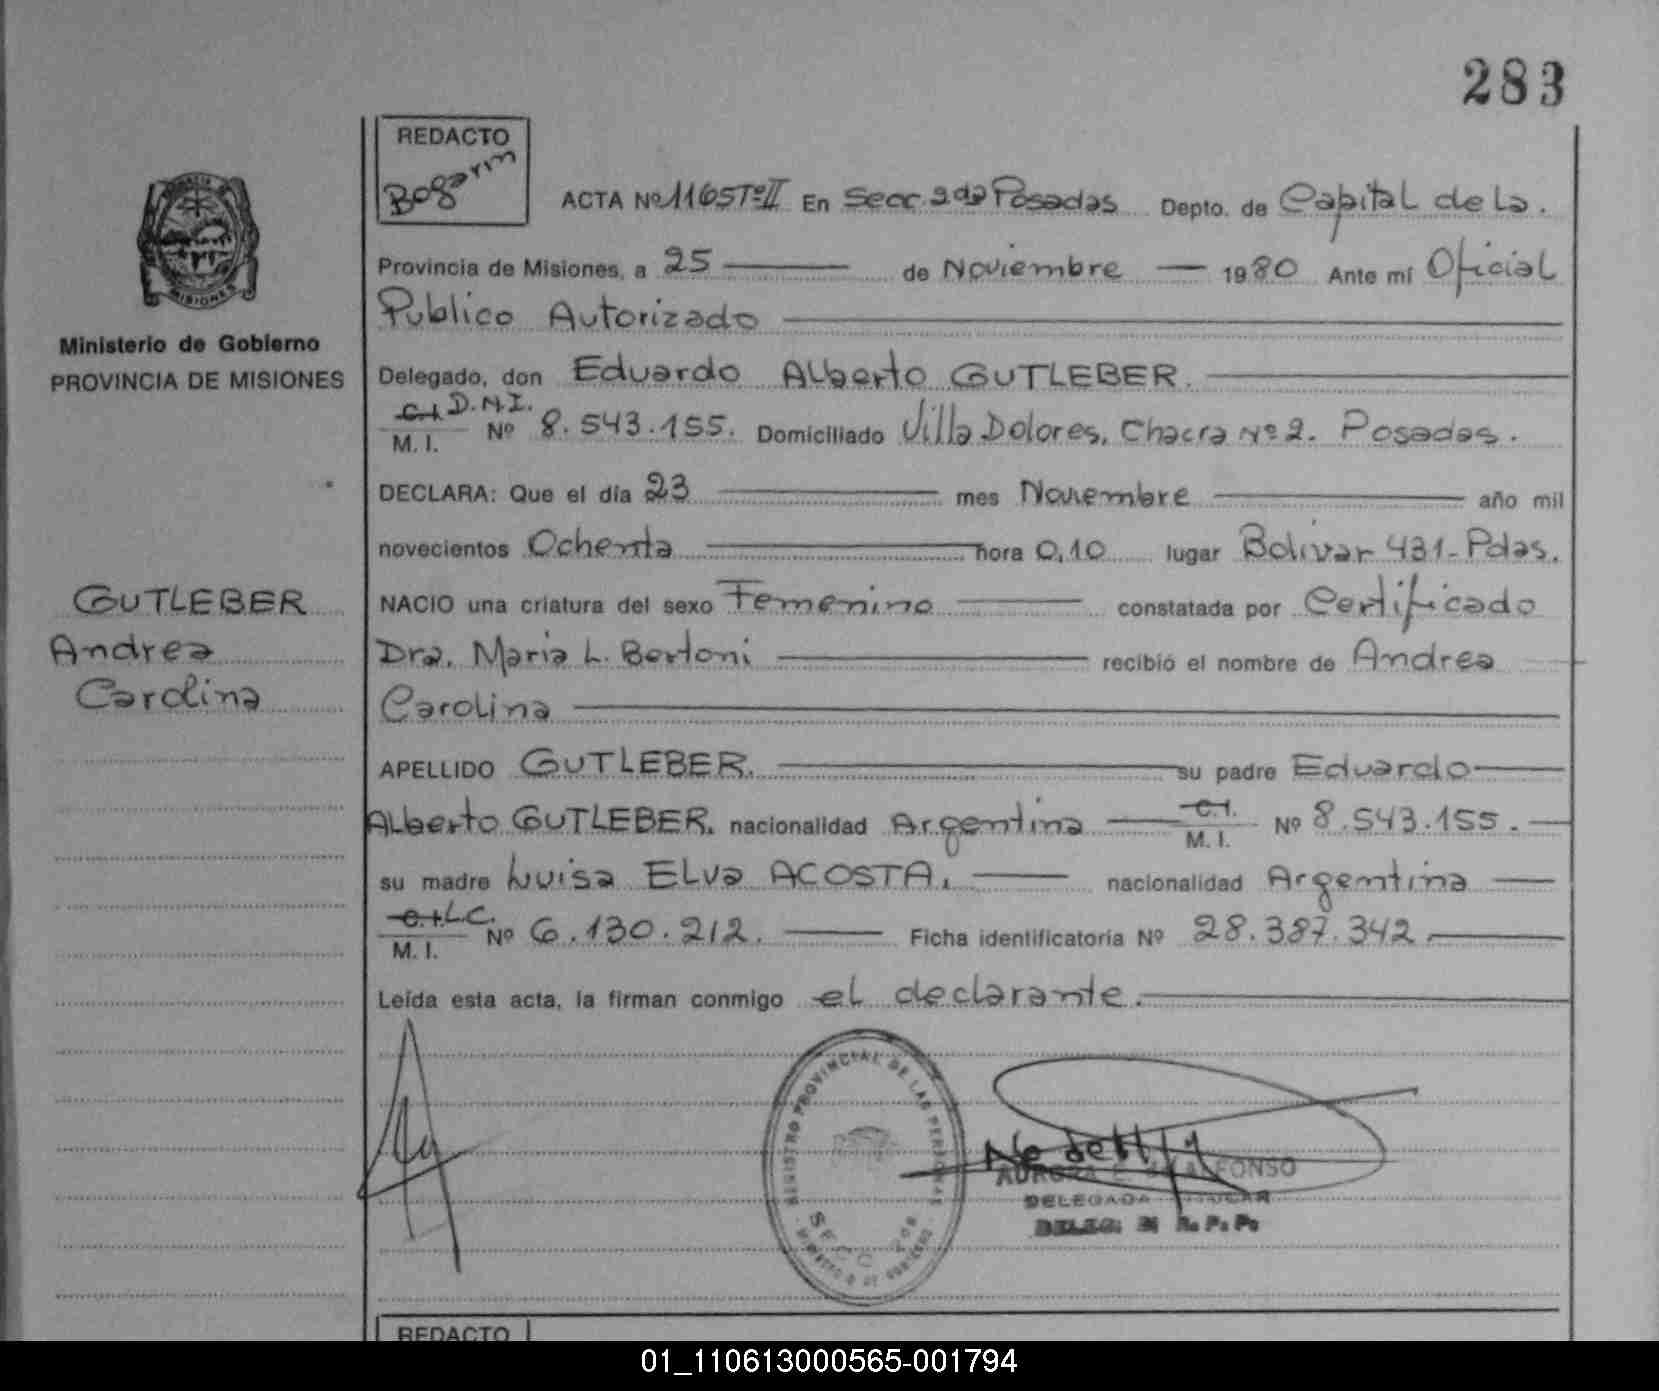 283
REDACTO
Bogarm
ACTA Nº 1165 Tº II En Secc. 2da Posadas Depto. de Capital de La.
Provincia de Misiones, a 25 de Noviembre 1980 Ante mí Oficial
Publico Autorizado
Ministerio de Gobierno
PROVINCIA DE MISIONES
Delegado, don Eduardo Alberto GUTLEBER.
C.I. D.N.I.
M. I. Nº 8.543.155. Domiciliado Villa Dolores, Chacra Nº 2. Posadas.
DECLARA: Que el día 23 mes Noviembre año mil
novecientos Ochenta hora 0,10 lugar Bolívar 431- Pdas.
GUTLEBER
Andrea
Carolina
NACIO una criatura del sexo Femenino constatada por Certificado
Dra. Maria L. Bertoni recibió el nombre de Andrea
Carolina
APELLIDO GUTLEBER. su padre Eduardo
Alberto GUTLEBER. nacionalidad Argentina C.I. M. I. Nº 8.543.155.
su madre Luisa Elva ACOSTA. nacionalidad Argentina
C.I. L.C.
M. I. Nº 6.130.212. Ficha identificatoria Nº 28.387.342.
Leída esta acta, la firman conmigo el declarante.
REGISTRO PROVINCIAL DE LAS PERSONAS
SECC.
MINISTERIO DE GOBIERNO
AURORA E. ALFONSO
DELEGADA TITULAR
R. P. P.
REDACTO
01_110613000565-001794